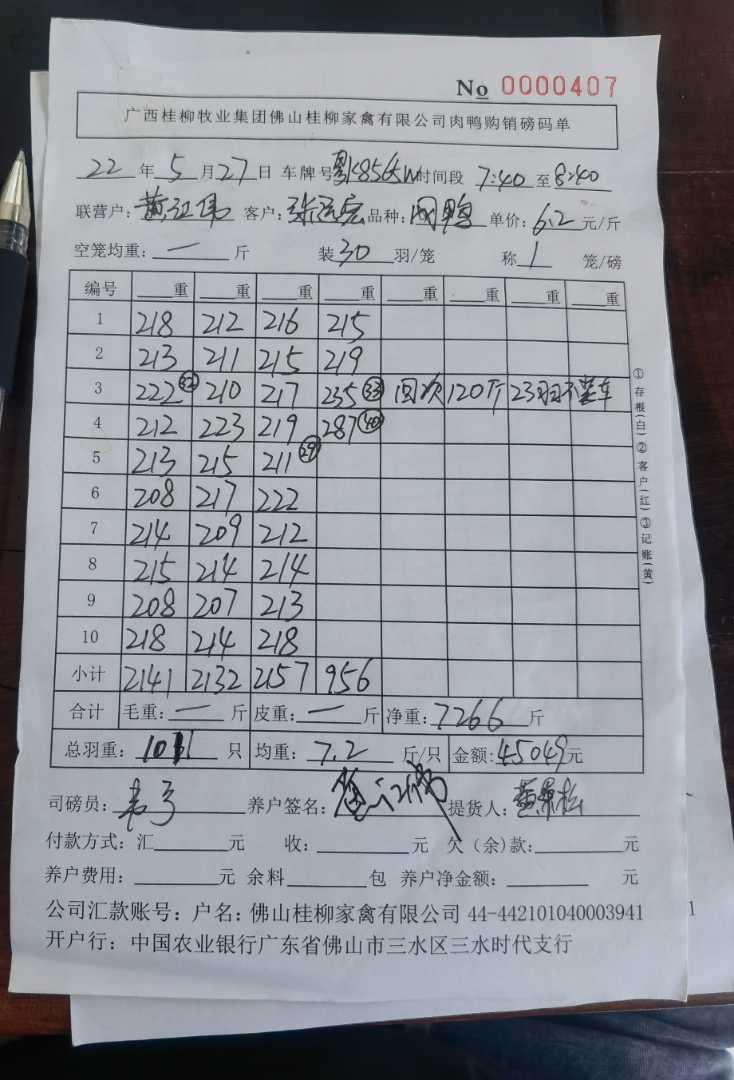 No 0000407
广西桂柳牧业集团佛山桂柳家禽有限公司肉鸭购销磅码单
22 年 5 月 27 日 车牌号 粤K8565W 时间段 7:40 至 8:40
联营户: 黄江伟 客户: 品种: 鸭 单价: 6.2 元/斤
空笼均重: 一 斤 装 30 羽/笼 称 1 笼/磅
编号 重 重 重 重 重 重 重 重
1 218 212 216 215
2 213 211 215 219
3 222 32 210 217 235 33 回次 120斤 23羽不装车
4 212 223 219 287 40
5 213 215 211 29
6 208 217 222
7 214 209 212
8 215 214 214
9 208 207 213
10 218 214 218
小计 2141 2132 2157 956
合计 毛重: 一 斤 皮重: 一 斤 净重: 7266 斤
总羽重: 1011 只 均重: 7.2 斤/只 金额: 45049 元
司磅员: 养户签名: 提货人:
付款方式: 汇 元 收: 元 欠(余)款: 元
养户费用: 元 余料 包 养户净金额: 元
公司汇款账号: 户名: 佛山桂柳家禽有限公司 44-442101040003941
开户行: 中国农业银行广东省佛山市三水区三水时代支行
①存根(白)②客户(红)③记账(黄)
1